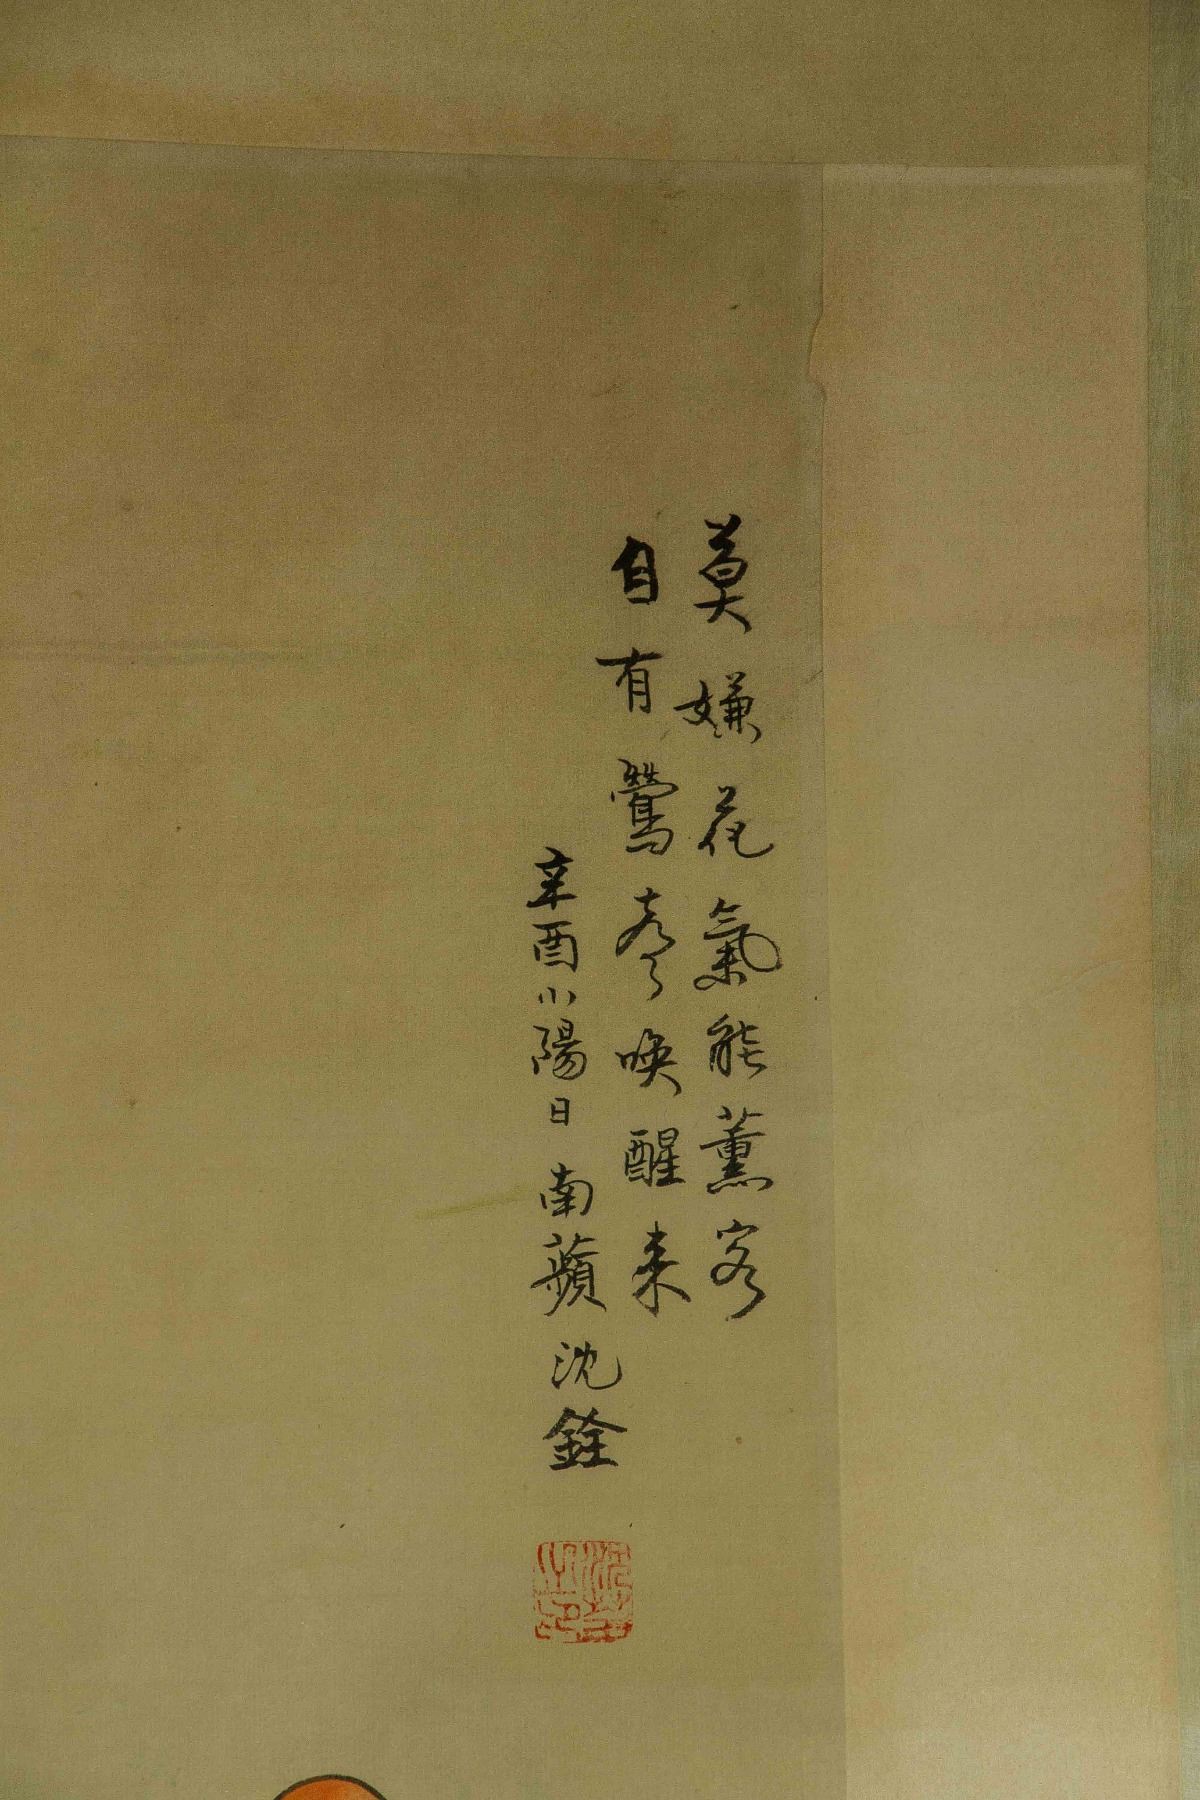 莫嫌花氣能薰客
自有鶯聲喚醒来
辛酉小陽日南蘋沈銓
沈銓之印